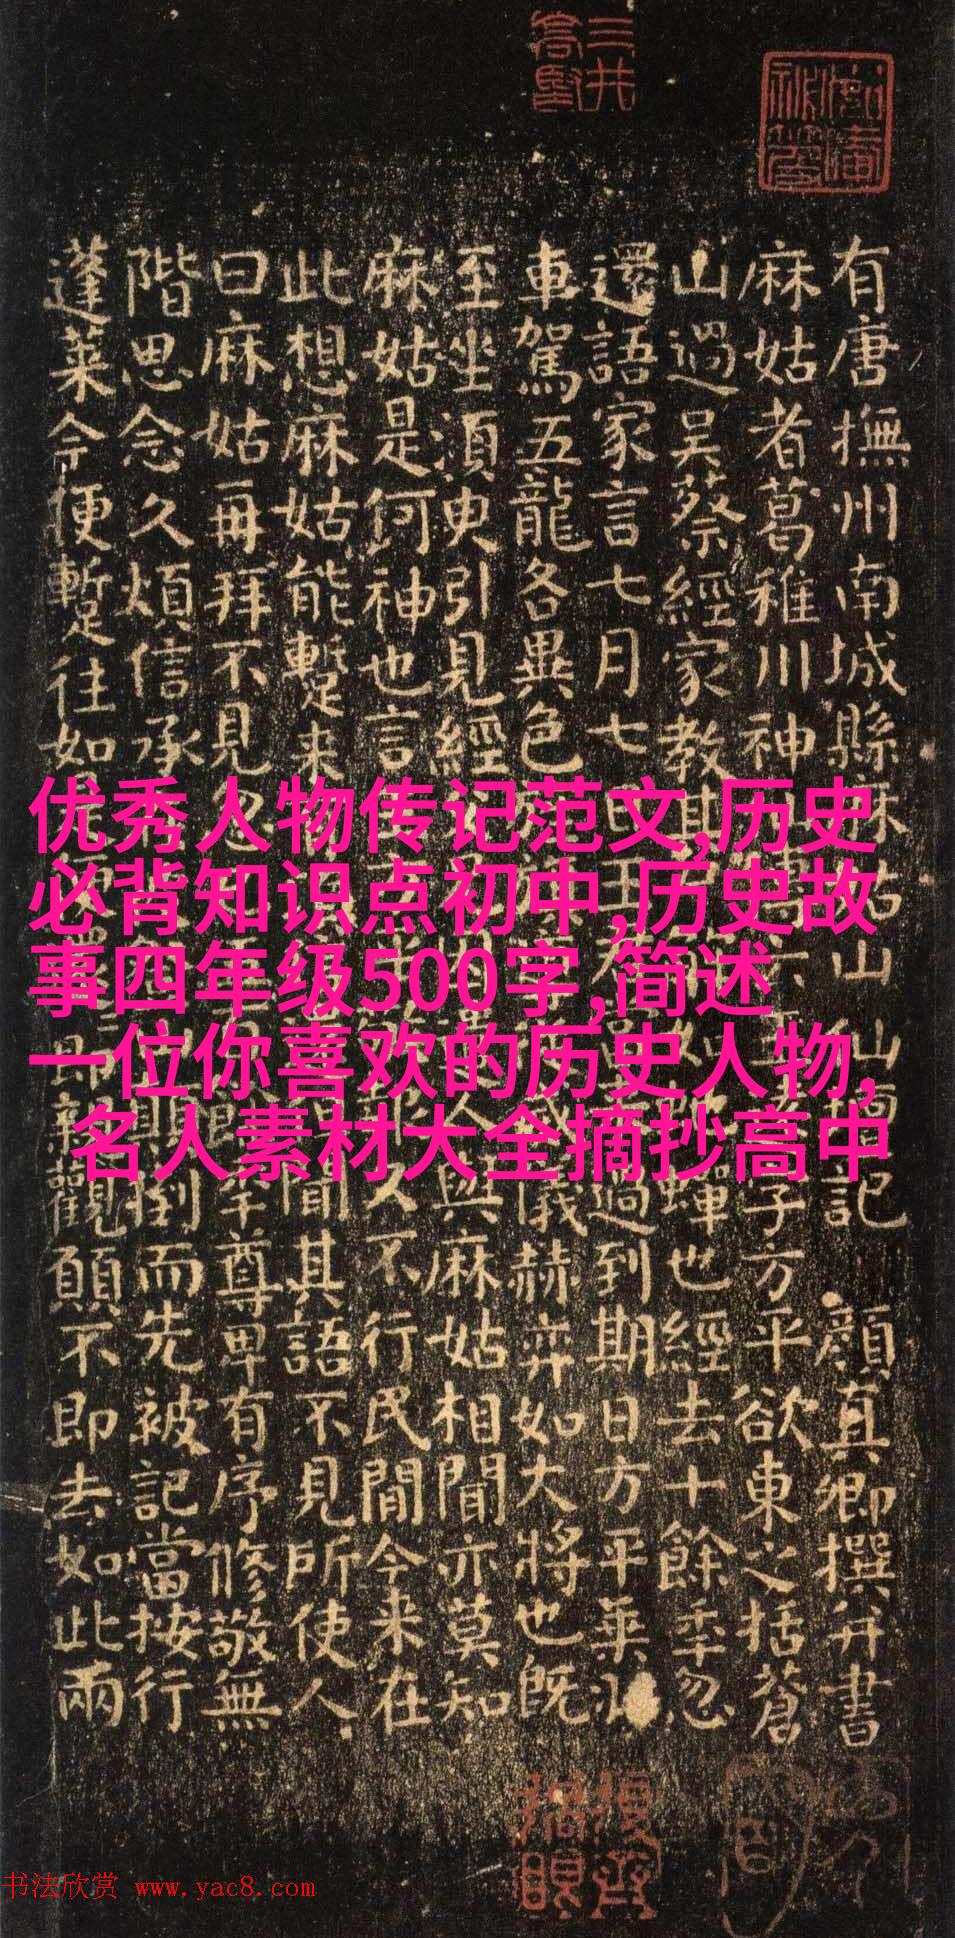 有唐撫州南城縣麻姑山仙壇記 顏真卿撰并書
麻姑者葛稚川神字方平欲東之括蒼
山過吳蔡經家教其蟬也經去十餘年忽
還語家言七月七日王過到期日方平乘羽
車駕五龍各異色儀赫弈如大將也既
至坐須臾引見經人與麻姑相聞亦莫知
麻姑是何神也言久不行民間今來在
此想麻姑能蹔来聞其語不見所使人
曰麻姑再拜不見忽年尊卑有序修敬無
階思念久煩信承倒而先被記當按行
蓬萊今便蹔往如還即親觀願不即去如此兩
优秀人物传记范文,历史
必背知识点初中,历史故
事四年级500字,简述
一位你喜欢的历史人物,
名人素材大全摘抄高中
书法欣赏 www.yac8.com